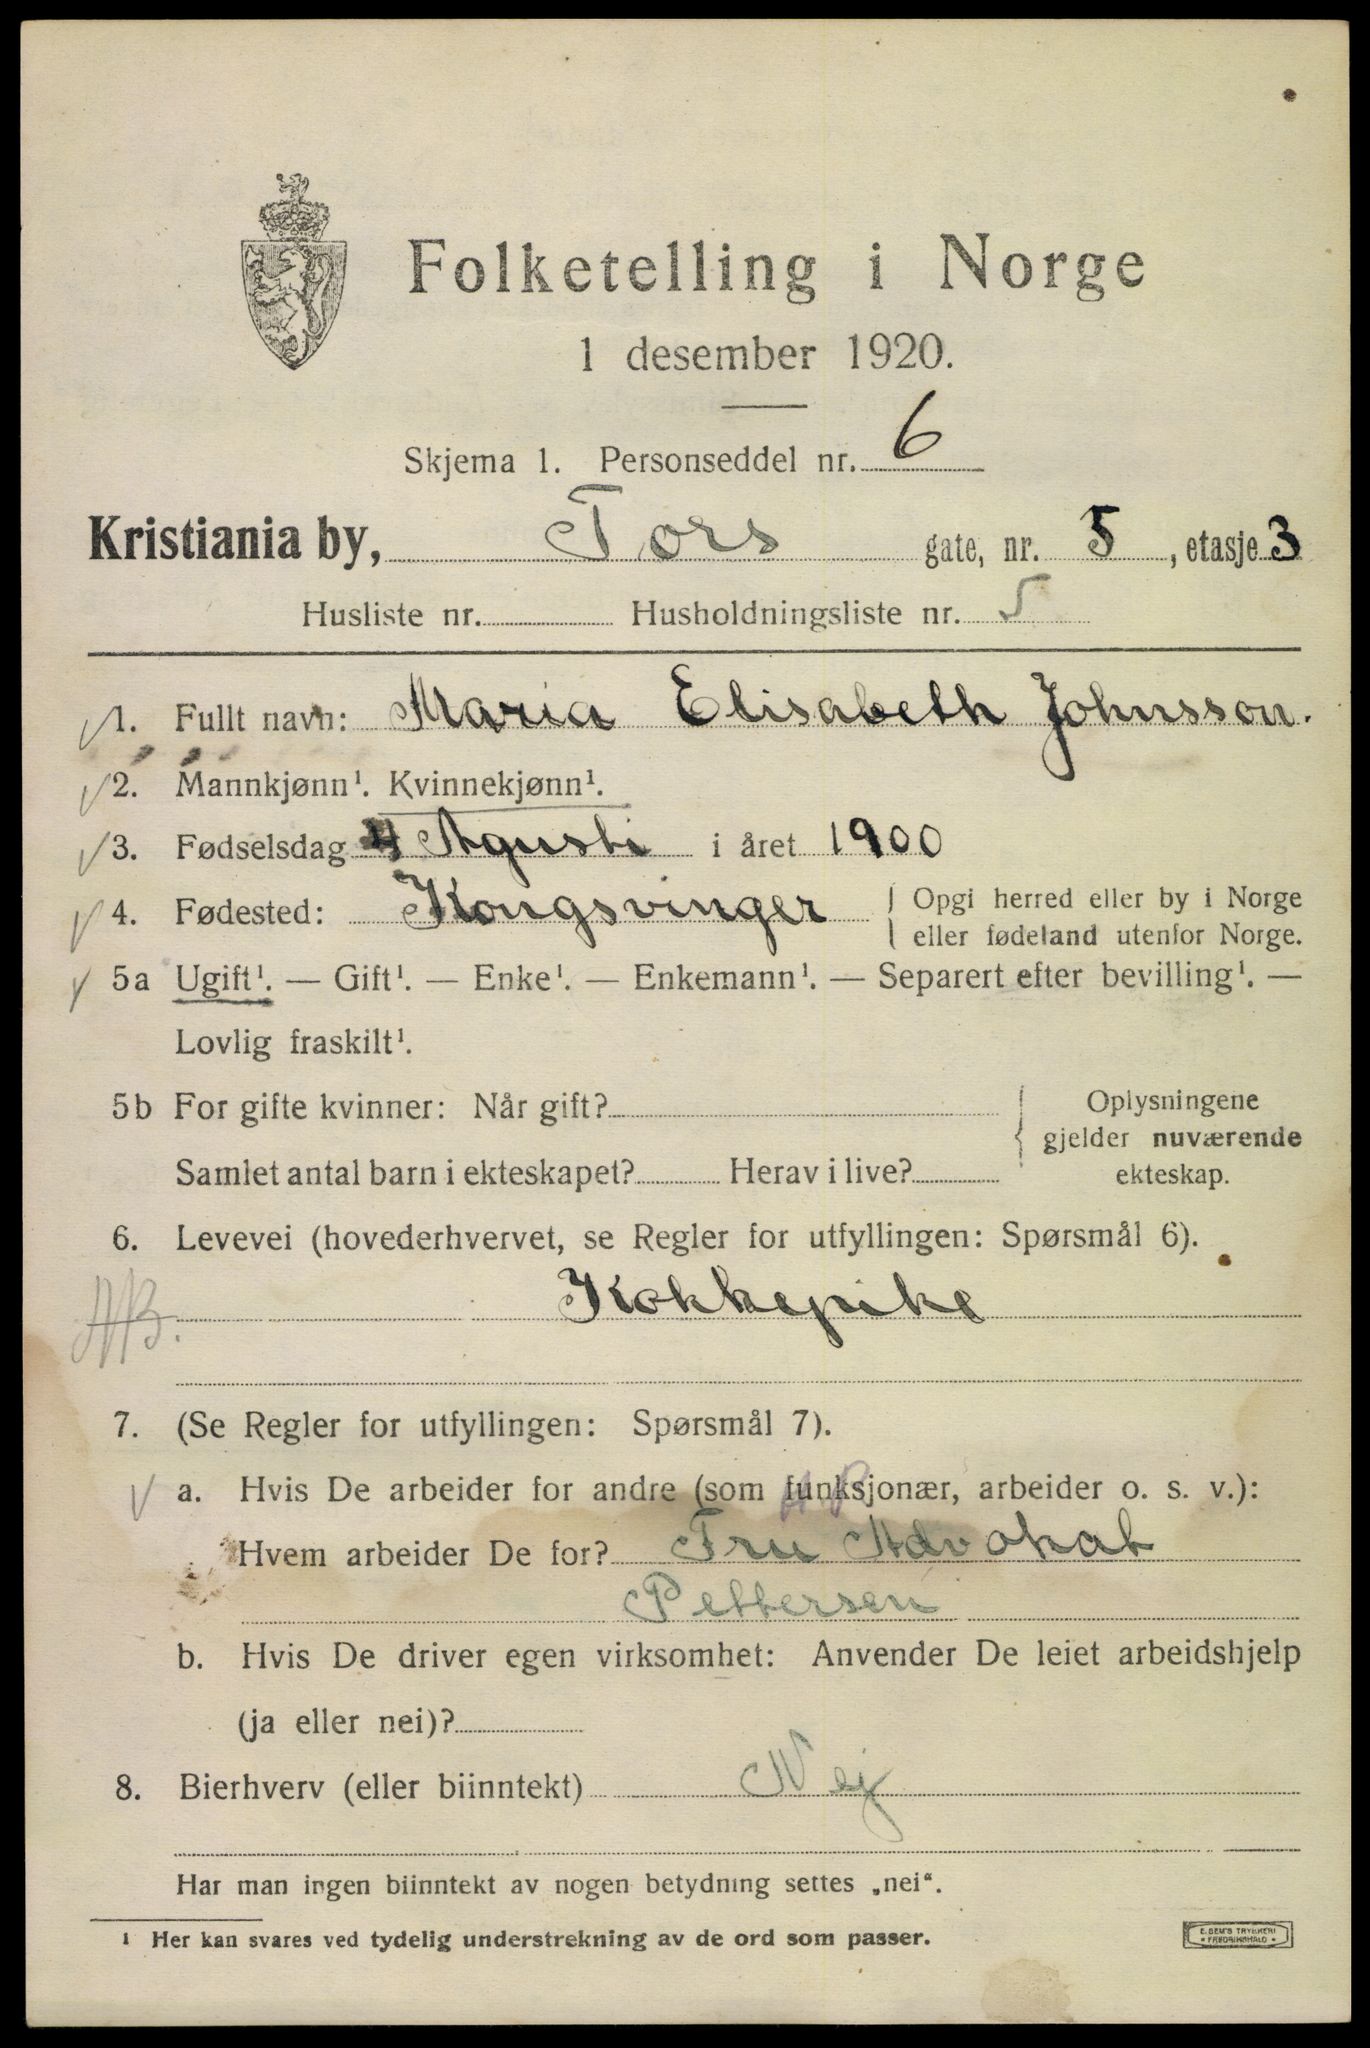 Folketelling i Norge
1 desember 1920.
Skjema 1. Personseddel nr. 6
Kristiania by, Tors gate, nr. 5, etasje 3
Husliste nr. Husholdningsliste nr. 5
1. Fullt navn: Maria Elisabeth Johnsson.
2. Mannkjønn¹. Kvinnekjønn¹.
3. Fødselsdag 4 Agusti i året 1900
4. Fødested: Kongsvinger Opgi herred eller by i Norge
eller fødeland utenfor Norge.
5a Ugift¹. — Gift¹. — Enke¹. — Enkemann¹. — Separert efter bevilling¹. —
Lovlig fraskilt¹.
5b For gifte kvinner: Når gift?
Samlet antal barn i ekteskapet? Herav i live?
Oplysningene
gjelder nuværende
ekteskap.
6. Levevei (hovederhvervet, se Regler for utfyllingen: Spørsmål 6).
Kokkepike
7. (Se Regler for utfyllingen: Spørsmål 7).
a. Hvis De arbeider for andre (som funksjonær, arbeider o. s. v.):
Hvem arbeider De for? Fru Advokat
Pettersen
b. Hvis De driver egen virksomhet: Anvender De leiet arbeidshjelp
(ja eller nei)?
8. Bierhverv (eller biinntekt) Nej
Har man ingen biinntekt av nogen betydning settes „nei“.
¹ Her kan svares ved tydelig understrekning av de ord som passer.
E. SEM'S TRYKKERI
FREDRIKSHALD